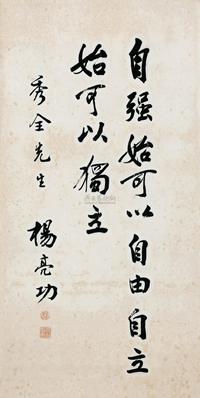 自强始可以自由自立
始可以獨立
秀全先生
楊亮功